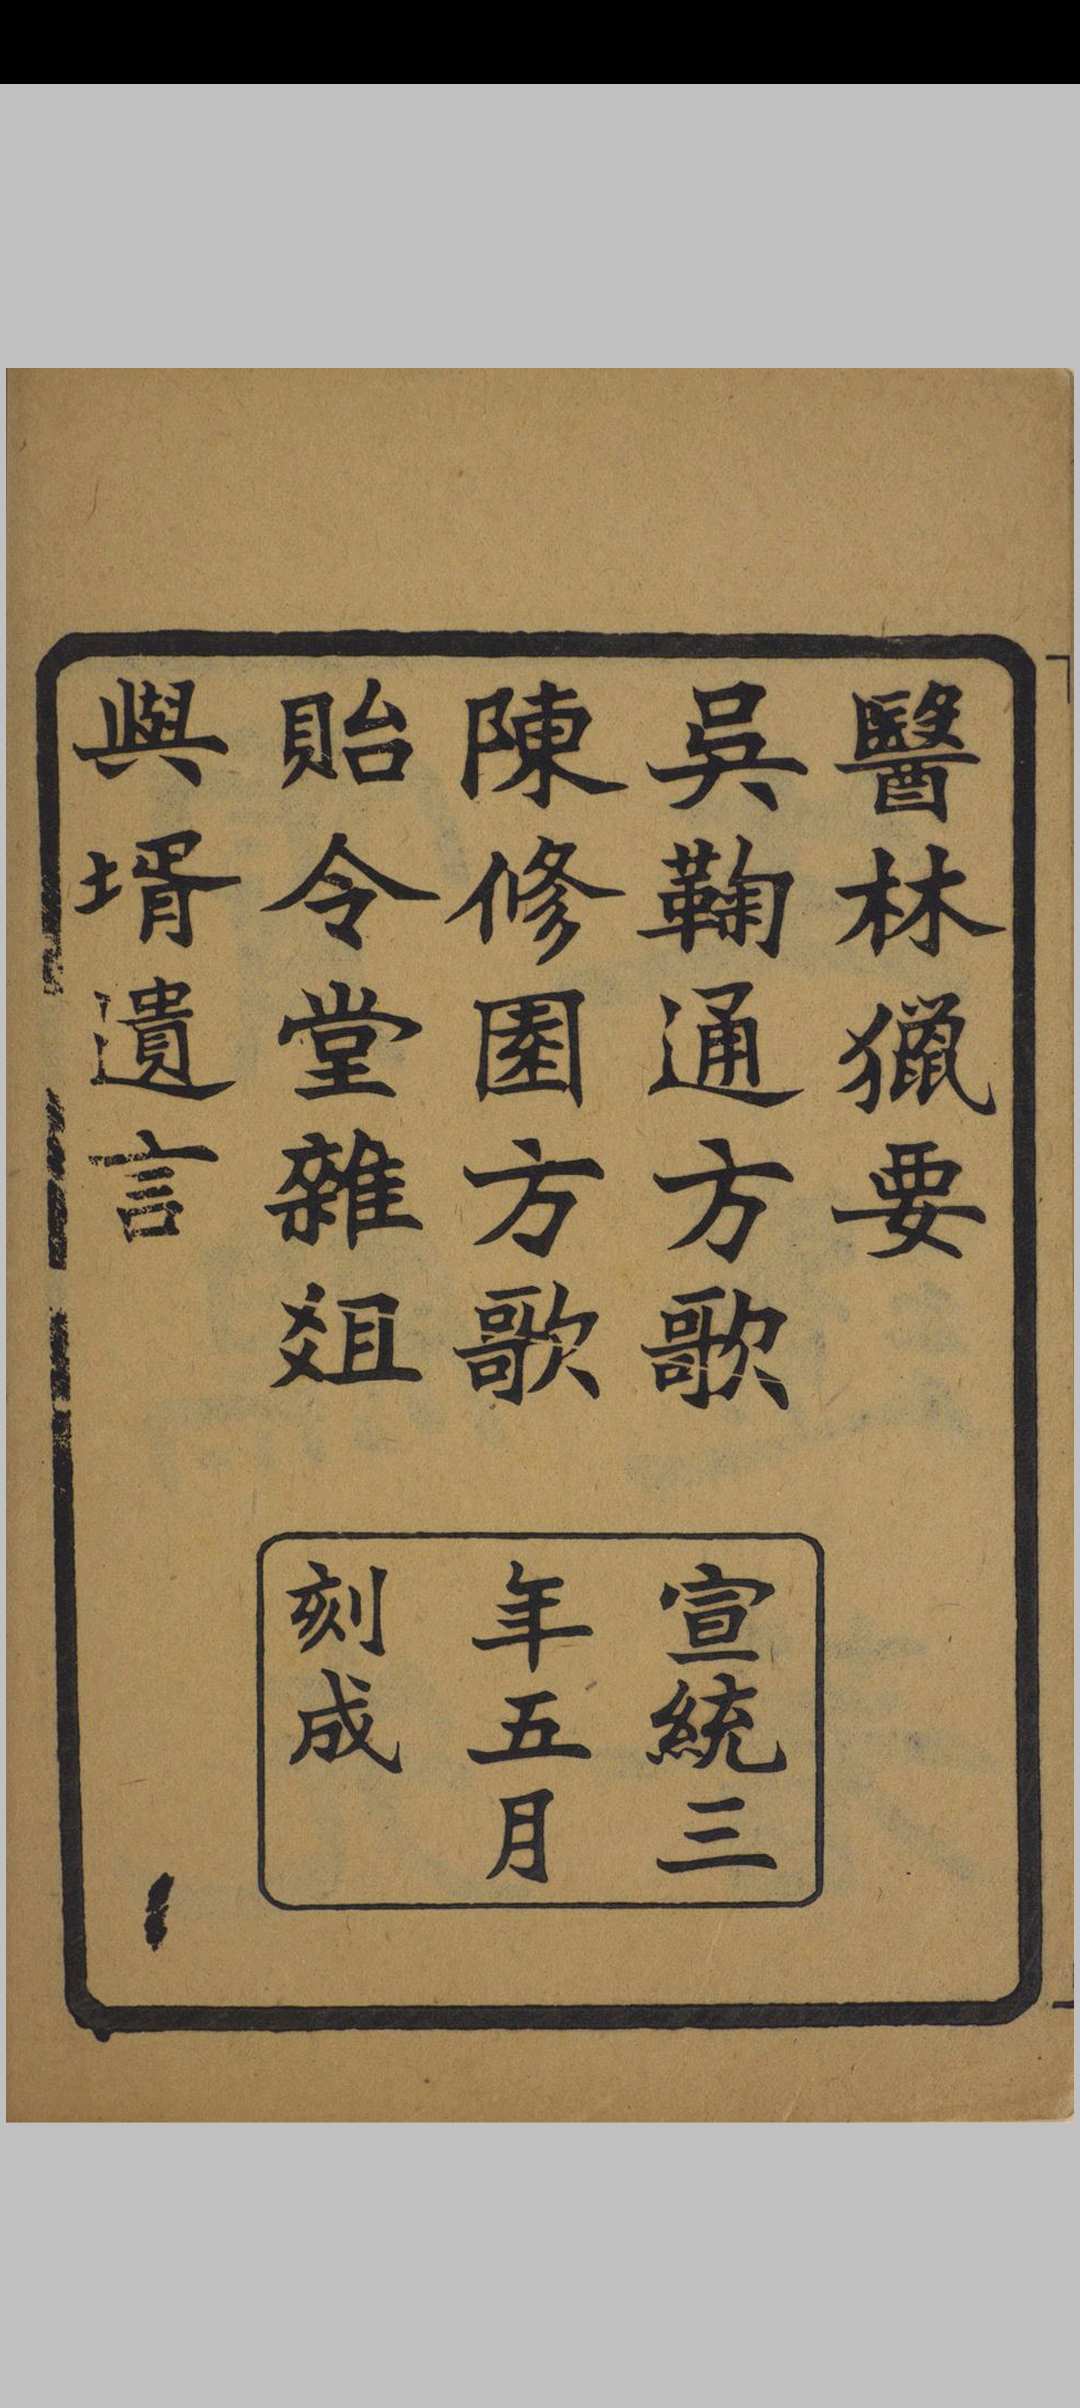 醫林獵要
吳鞠通方歌
陳修園方歌
貽令堂雜俎
與壻遺言
宣統三
年五月
刻成